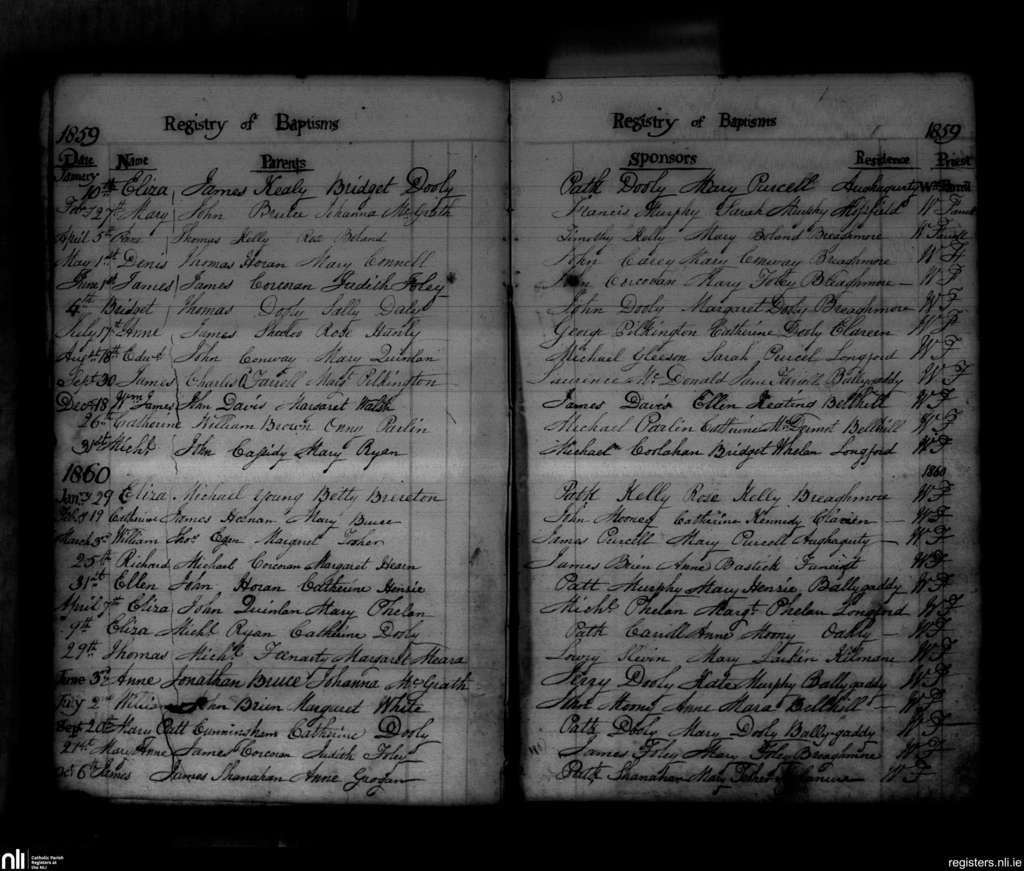 Registry of Baptisms Registry of Baptisms
1859 1859
Date Name Parents Sponsors Residence Priest
January
10th Eliza James Kealy Bridget Dooly Patk Dooly Mary Purcell Aughagurty Wm
27th Mary John Johanna McGrath Francis Murphy Sarah Murphy W
April 5th Thomas Kelly Rose Boland Timothy Kelly Mary Boland Breaghmore W
May 1st Denis Thomas Horan Mary Connell John Carey Mary Conway Breaghmore W F
June 1st James James Corcoran Judith Foley John Corcoran Mary Foley Breaghmore W F
4th Bridget Thomas Sally Daly John Dooly Margaret Dooly Breaghmore W F
July 17th Anne James Rose George Pilkington Catherine Dooly W F
Augst 18th Edwd John Conway Mary Quinlan Michael Gleeson Sarah Purcel Longford W F
Sept 30 James Charles Farrell Margt Pilkington Laurence McDonald Ballygaddy W F
Decr 18 Wm James John Davis Margaret Walsh James Davis Ellen Keating Bellhill W F
26th Catherine William Brown Onny Parlin Michael Parlin Catherine Bellhill W F
31st Michl John Cassidy Mary Ryan Michael Coolahan Bridget Whelan Longford W F
1860 1860
Jany 29 Eliza Michael Young Betty Brereton Patk Kelly Rose Kelly Breaghmore W F
Feb 19 Catherine James Heenan Mary Bruce John Mooney Catherine Kennedy W F
March 3rd William Thos Egan Margret James Purcell Mary Purcell Aughagurty W F
25th Richard Michael Corcoran Margaret Hearn James Brien Anne Bastick W F
31st Ellen John Horan Catherine Henrie Patt Murphy Mary Henrie Ballygaddy W F
April 7th Eliza John Quinlan Mary Phelan Michl Phelan Margt Phelan Longford W F
9th Eliza Michl Ryan Catherine Dooly Patk Carroll Anne Moony W F
29th Thomas Michl Feenarty Margaret Meara Lowry Kevin Mary Larkin W F
June 3rd Anne Jonathan Bruce Johanna McGrath Jerry Dooly Kate Murphy Ballygaddy W F
July 2nd John Brien Margaret White Anne Mara Bellhill W F
Sept 20th Mary Patt Cunningham Catherine Dooly Patk Dooly Mary Dooly Ballygaddy W F
21st Mary Anne James Corcoran Judith Foley James Foley Mary Foley Breaghmore W F
Oct 6th James James Shanahan Anne Grogan Patk Shanahan Mary W F
nli
Catholic Parish
Registers at
the NLI
registers.nli.ie